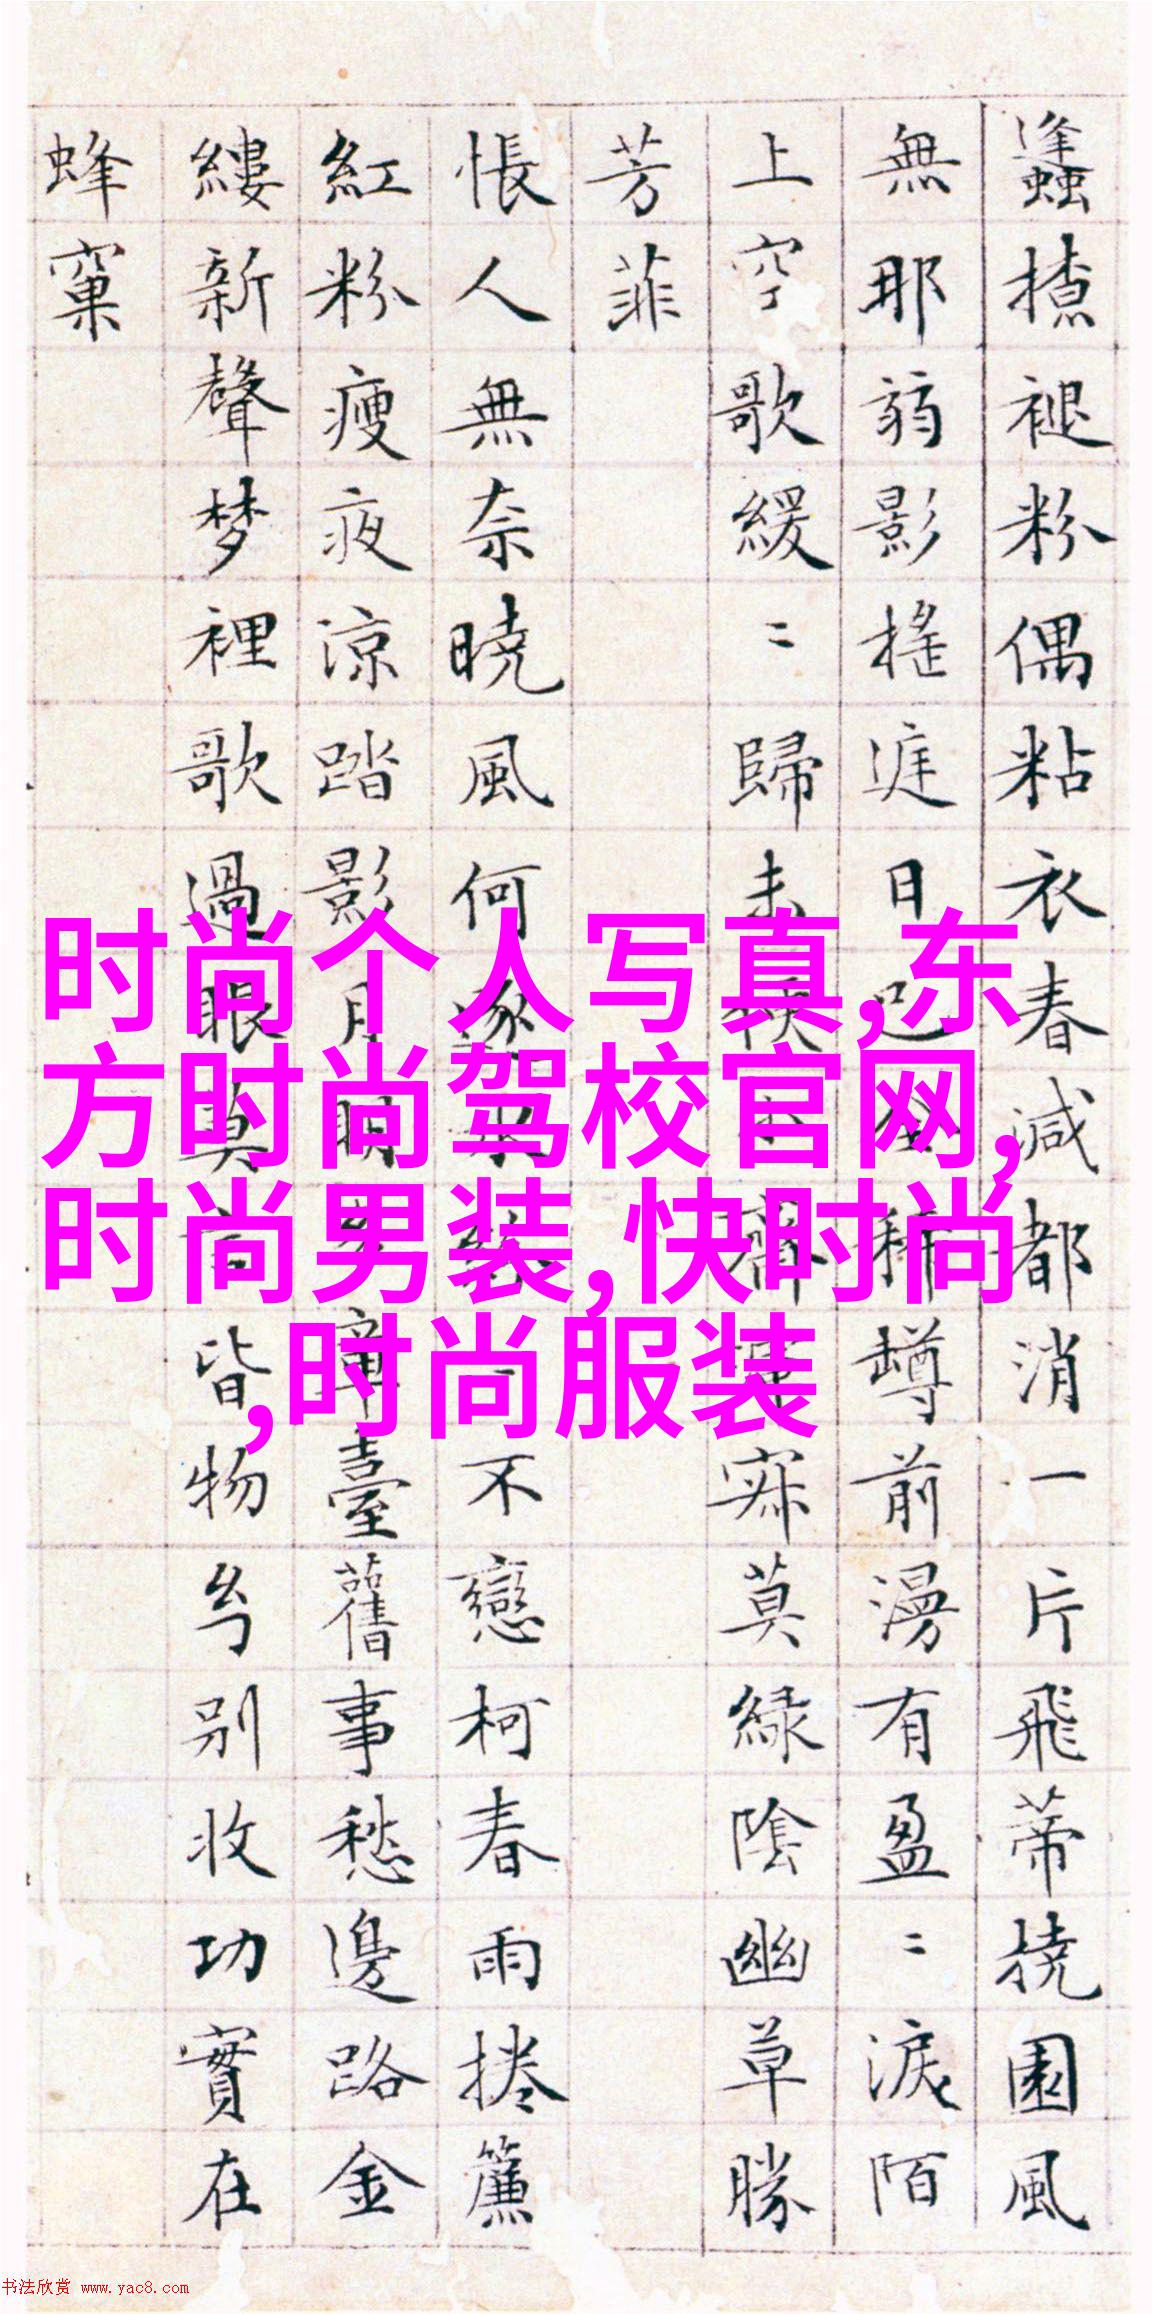 蠭揸褪粉偶粘衣春減都消一片飛蒂撓園風
無那弱影搖遅日已種蹲前漫有盈〻淚陌
上空歌緩〻歸未齊寂莫緑陰幽草勝
芳菲
悵人無奈曉風何逐水不戀柯春雨捲簾
紅粉瘦夜涼踏影月明章臺舊事愁邊路金
縷新聲梦裡歌過眼莫皆物兮別收功實在
蜂窠
时尚个人写真,东
方时尚驾校官网,
时尚男装,快时尚
,时尚服装
书法欣赏 www.yac8.com